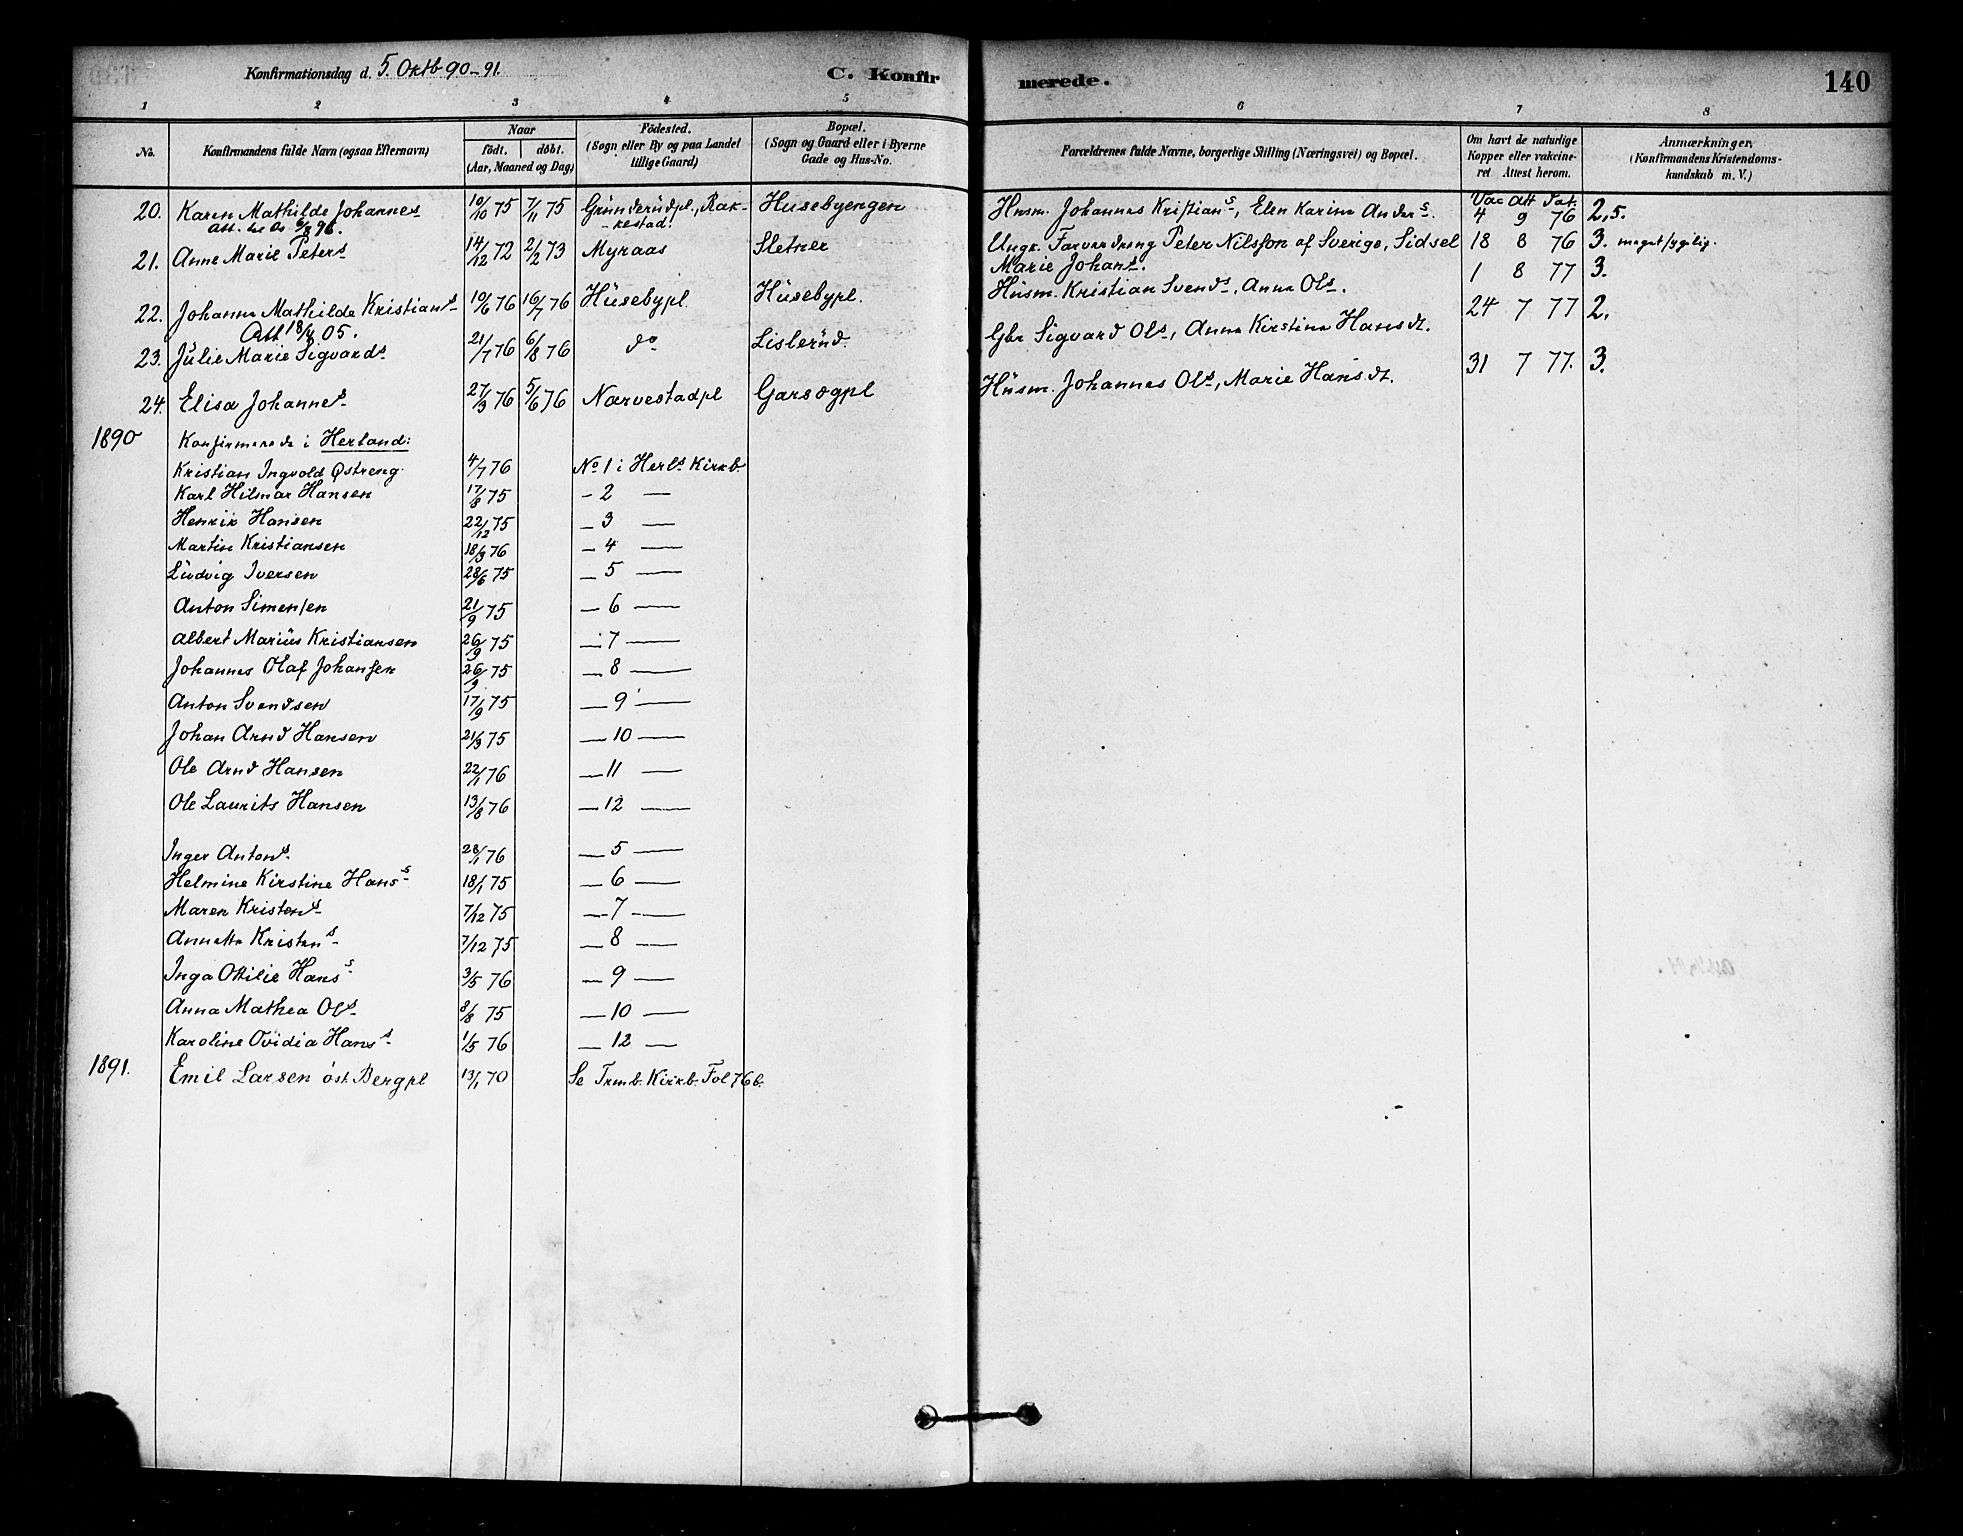 Konfirmationsdag d. 5. Oktb 90-91. C. Konfir merede. 140
1 2 3 4 5 6 7 8
No. Konfirmandens fulde Navn (ogsaa Efternavn) Naar født. døbt. (Aar, Maaned og Dag) Födested. (Sogn eller By og paa Landet tillige Gaard) Bopæl. (Sogn og Gaard eller i Byerne Gade og Hus-No. Forældrenes fulde Navne, borgerlige Stilling (Næringsvei) og Bopæl. Om havt de naturlige Kopper eller vakcineret Attest herom. Anmærkninger. (Konfirmandens Kristendomskundskab m. V.)
Vac Att Dat.
20. Karen Mathilde Johannes 10/10 75 7/11 75 Gründerüdpl., Rakkestad! Husebyengen Husm. Johannes Kristians, Elen Karine Anders. 4 9 76 2,5.
Att. 6/8 96.
21. Anne Marie Peters 14/12 72 2/2 73 Myraas Sletner Ungk. Farverdreng Peter Nilsson af Sverige, Sidsel 18 8 76 3. meget sygelig.
Marie Johans.
22. Johanne Mathilde Kristians 10/6 76 16/7 76 Hüsebypl. Hüsebypl. Hüsm. Kristian Svends, Anna Ols. 1 8 77 3.
Att 18/4 05.
23. Julie Marie Sigvards 21/7 76 6/8 76 do Lislerüd Gbr Sigvard Ols, Anna Kirstine Hansdt. 24 7 77 2.
24. Elisa Johannes 27/3 76 5/6 76 Narvestadpl Garsegpl Hüsm. Johannes Ols, Marie Hansdt. 31 7 77. 3.
1890 Konfirmerede i Herland:
Kristian Ingvold Østreng. 4/7 76 No 1 i Herls Kirkb.
Karl Hilmar Hansen 17/8 75 - 2 —
Henrik Hansen 22/12 75 - 3 —
Martin Kristiansen 18/3 76 - 4 —
Lüdvig Iversen 28/6 75 - 5 —
Anton Simensen 21/9 75 - 6 —
Albert Mariüs Kristiansen 26/9 75 - 7 —
Johannes Olaf Johansen 26/9 75 - 8 —
Anton Svendsen 17/9 75 - 9 —
Johan Arnd Hansen 21/3 75 - 10 —
Ole Arnd Hansen 22/1 76 - 11 —
Ole Laurits Hansen 13/8 76 - 12 —
Inger Antons. 28/1 76 - 5 —
Helmine Kirstine Hanss 18/1 75 - 6 —
Maren Kristens 7/12 75 - 7 —
Annette Kristens 7/12 75 - 8 —
Inga Otilie Hanss 3/5 76 - 9 —
Anna Mathea Ols 8/8 75 - 10 —
Karoline Ovidia Hanss 1/5 76 - 12 —
1891. Emil Larsen öst. Bergpl 13/1 70 Se Trmb. Kirkb. Fol 76 b.